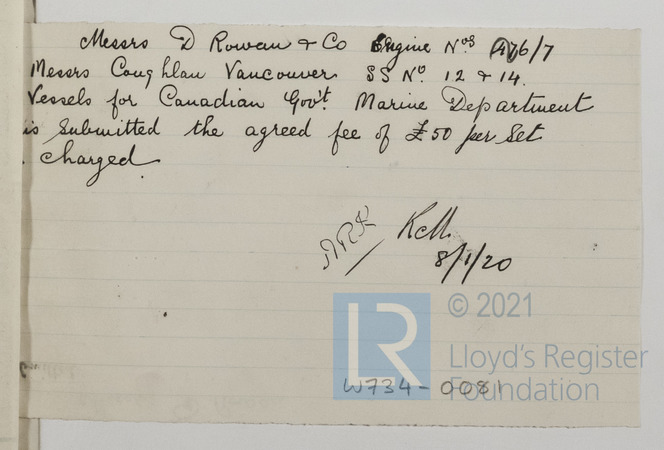 Messrs D Rowan & Co Engine Nos 1476/7
Messrs Coughlan Vancouver SS No. 12 & 14.
Vessels for Canadian Gov't. Marine Department
is submitted the agreed fee of £50 per set
charged.
KM.
8/1/20
© 2021
LR
Lloyd's Register
Foundation
W734-0081